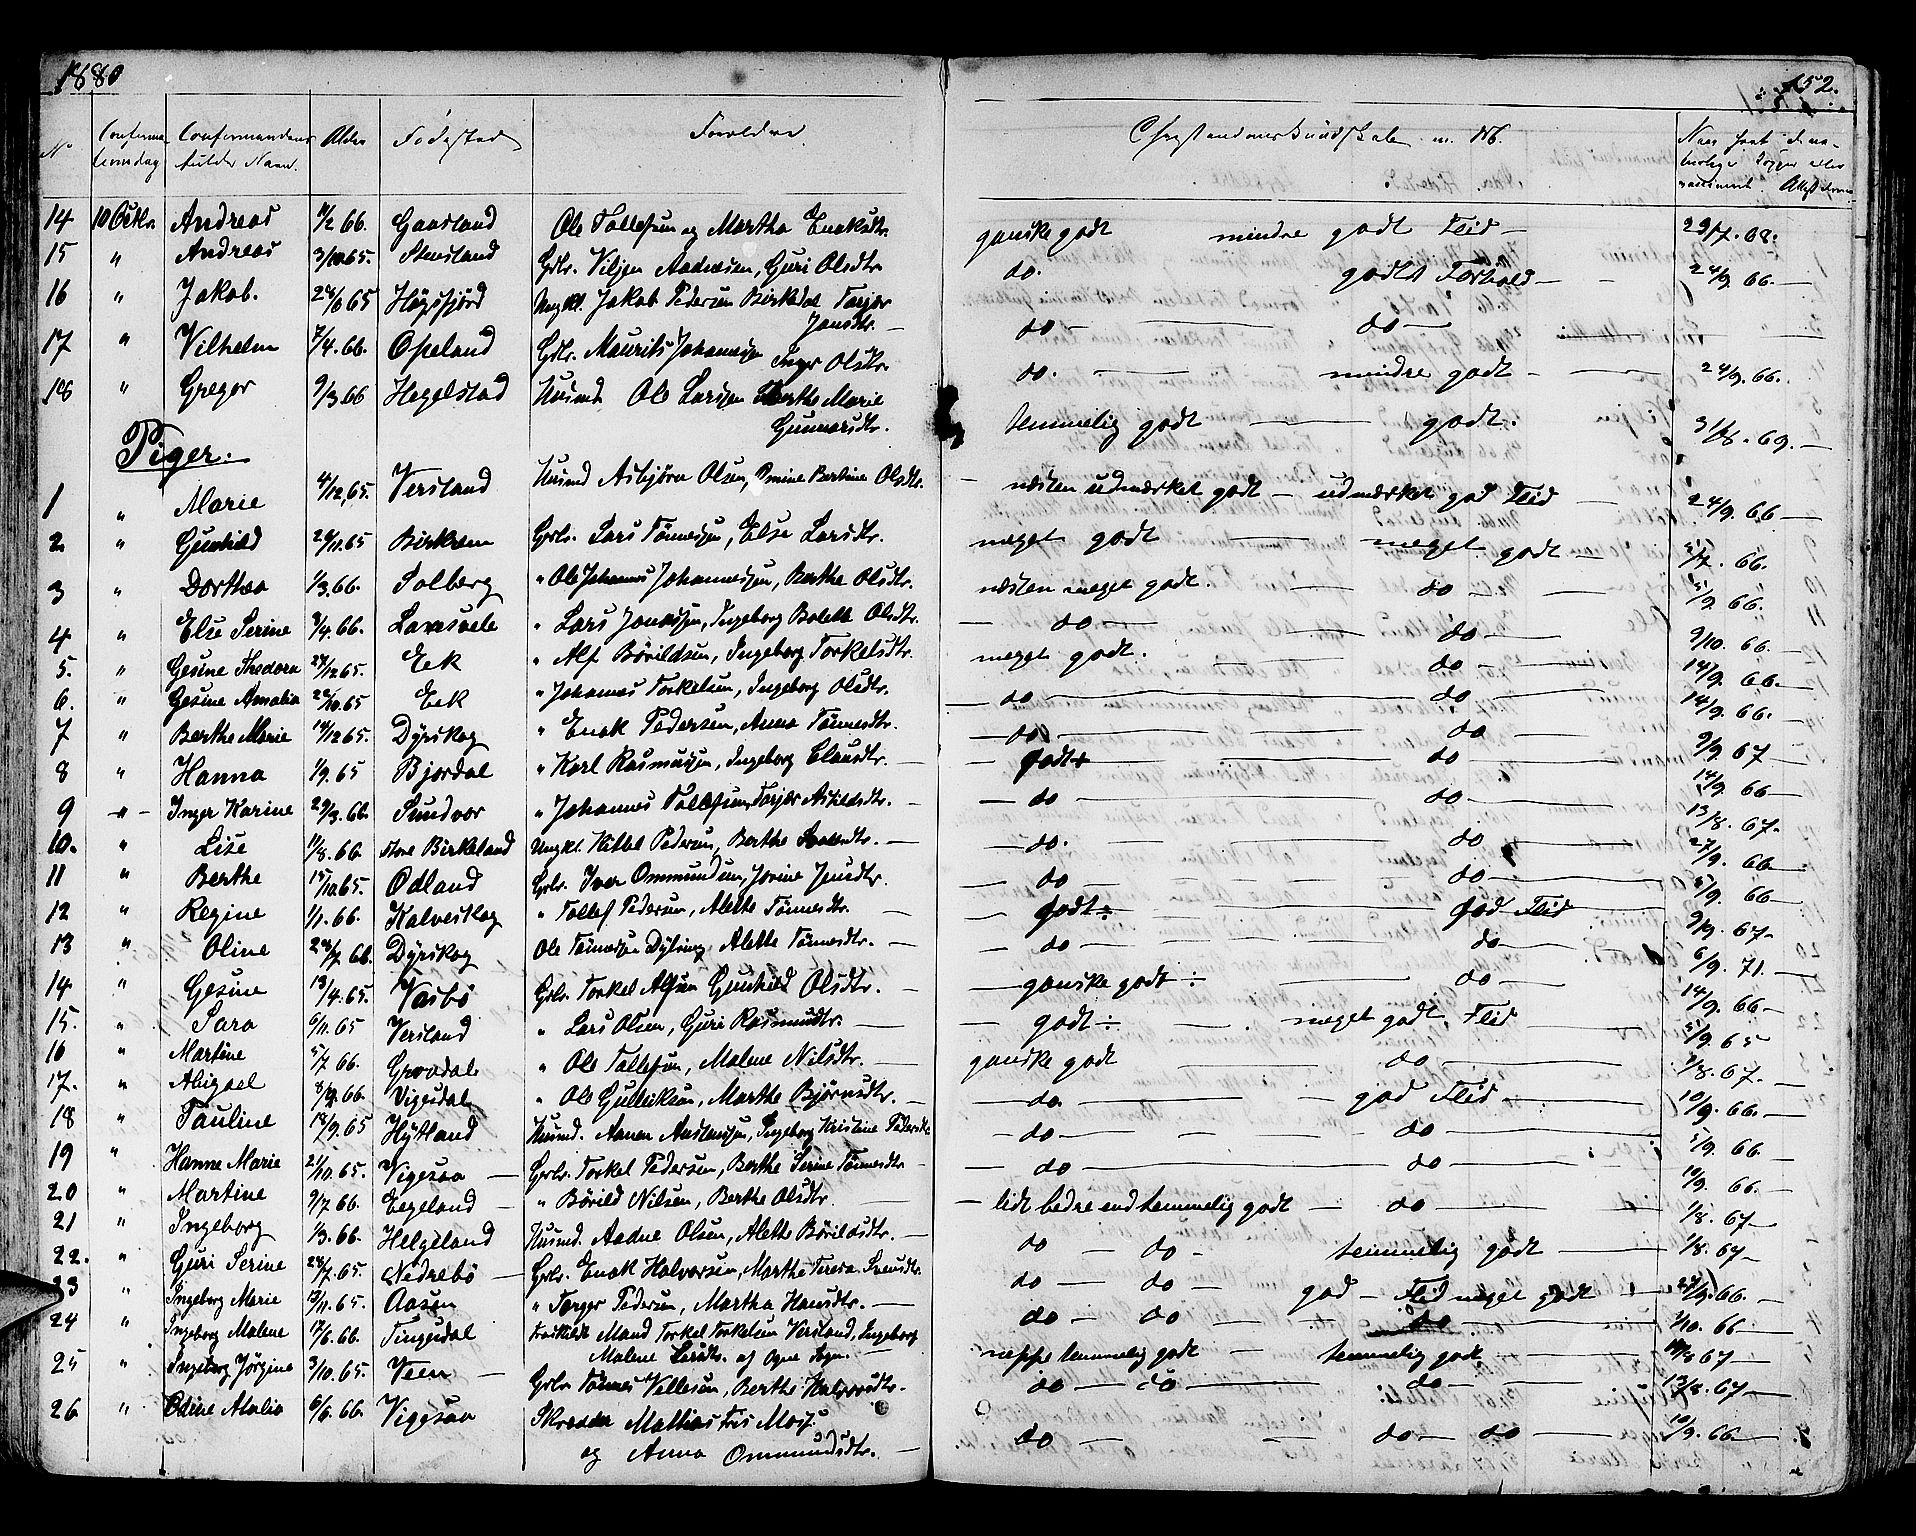 1880
152.
No
Confirma
tionsdag
Confirmandens
fulde Navn.
Alder
Fødested
Forældre
Christendomskundskab m. M.
Naar havt de na-
turlige Kopper eller
vaccineret. Attest
14 10 Octbr. Andreas 66. Gaasland Ole Tollefsen og Martha Enoksdtr. ganske godt mindre godt Flid 29/7. 68.
15 " Andreas 3/10 65. Stensland Grbr. Viljen Aadnesen, Guri Olsdtr. do. godt Forhold 24/9 66.
16 " Jakob. 65 Høgsfjord Ungkl. Jakob Pedersen Birkedal Torjer
Jonsdtr. do do
17 " Vilhelm 7/4. 66. Opeland Grbr. Maurits Johannesen Inger Olsdtr. do. mindre godt 24/9. 66.
18 " Greger 9/3 66 Hegelstad Husmd Ole Larsen Berthe Marie
Gunnarsdtr. temmelig godt godt. 31/8. 69.
Piger.
1 " Marie 4/12 65. Versland Husmd Asbjørn Olsen, Omine Bertine Olsdtr. næsten udmærket godt udmærket god Flid 24/9. 66
2 " Gunhild 65 Birkem Grbr. Lars Tønnesen, Else Larsdtr. meget godt meget godt 66.
3 " Dorthea 1/3. 66. Solberg " Ole Johannes Johannessen, Berthe Olsdtr. næsten meget godt. do 5/9 66.
4 " Else Serine 66. Lauvsvele " Lars Jonassen, Ingeborg Bolette Olsdtr. do do 9/10. 66.
5. " Gesine Thedora 65. Eek " Alf Børildsen, Ingeborg Torkelsdtr. meget godt. do 14/9. 66.
6. " Gesine Amalia 65 Eek " Johannes Torkelsen, Ingeborg Olsdtr. do do 14/9. 66.
7 " Berthe Marie 14/12 65. Dyrskog " Enok Pedersen, Anna Tønnesdtr. do do 9/9. 67
8 " Hanna 1/9. 65 Bjordal " Karl Rasmussen, Ingeborg Clausdtr. godt+ do 14/9 66
9 " Inger Karine 29/3. 66. Sundvor " Johannes Tollefsen, Torjer Askildsdtr. do do 13/8. 67.
10. " Lise 66. store Birkeland Ungkl. Kittel Pedersen, Berthe do. do 27/9. 66
11 " Berthe 15/10 65. Ødland Grbr. Iver Ommundsen, Jorine Jensdtr. do do 5/9 66
12 " Regine 1/1. 66. Kalveskog " Tollef Pedersen, Alette Tønnesdtr. godt ÷ god Flid 9/9. 67
13 " Oline 66. Dyrskog Ole Tønnesen Dyrskog Alette Tønnesdtr. do do 6/9. 71.
14 " Gesine 19/4. 65. Vasbø Grbr. Torkel Alfsen Gunhild Olsdtr. ganske godt ÷ do 14/9. 66
15. " Sara 6/11. 65 Versland " Lars Olsen, Guri Rasmusdtr. godt ÷ meget godt, Flid 5/9. 65
16 " Martine 5/7 66. Grøvdal " Ole Tollefsen, Malene Nilsdtr. ganske godt do 67.
17. " Abigael 66. Vigesdal " Ole Gulliksen, Marthe Bjørnsdtr. do. god Flid 10/9. 66.
18 " Pauline 65 Hytland Husmd. Andersen, Ingeborg Kristine Pedersdtr do do 5/9. 66.
19 " Hanne Marie 21/10. 65. Vigesaa Grbr. Torkel Pedersen, Berthe Serine Tønnesdtr do do 10/9. 66.
20 " Martine 9/7 66. Eegeland " Børild Nilsen, Berthe Olsdtr. lidt bedre end temmelig godt do 1/8. 67
21 " Ingeborg 1/3. 66. Helgeland Husmd. Aadne Olsen, Alette Børildsdtr. do do temmelig godt 1/8. 67
22. " Guri Serine 65. Nedrebø Grbr. Enok Halvorsen, Marthe Teresa Svensdtr. do do god Flid meget godt 66.
23 " Ingeborg Marie 65. Aasen " Torger Pedersen, Martha Hansdtr. do do do 66
24 " Ingeborg Malene 66. Tingedal Fraskildt Mand Torkel Torkelsen Versland, Ingeborg
Malene Larsdtr. af Ogne Sogn. neppe temmelig godt temmelig godt 67
25 " Ingeborg Jørgine 3/10. 65. Veen Grbr. Tønnes Vellesen, Berthe Halvorsdtr. do do do 13/8. 67
26 " Oline Amalia 6/6. 66. Vigesaa Skrædder Mathias
og Anna Ommundsdtr. do do do 10/9. 66